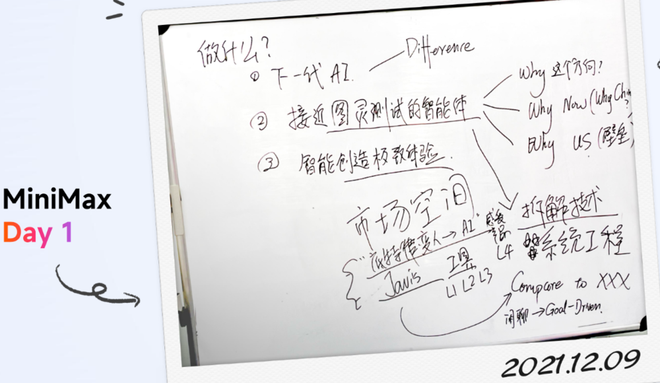 MiniMax
Day 1
做什么?
① 下一代 AI. — Difference
② 接近图灵测试的智能体
Why 这个方向?
Why Now (Why China
Why US (壁垒)
③ 智能创造极致体验.
市场空间
拆解技术
系统工程
→ AI
Jarvis
工具
L1 L2 L3
L4
Compare to XXX
闲聊 → Goal-Driven
2021.12.09